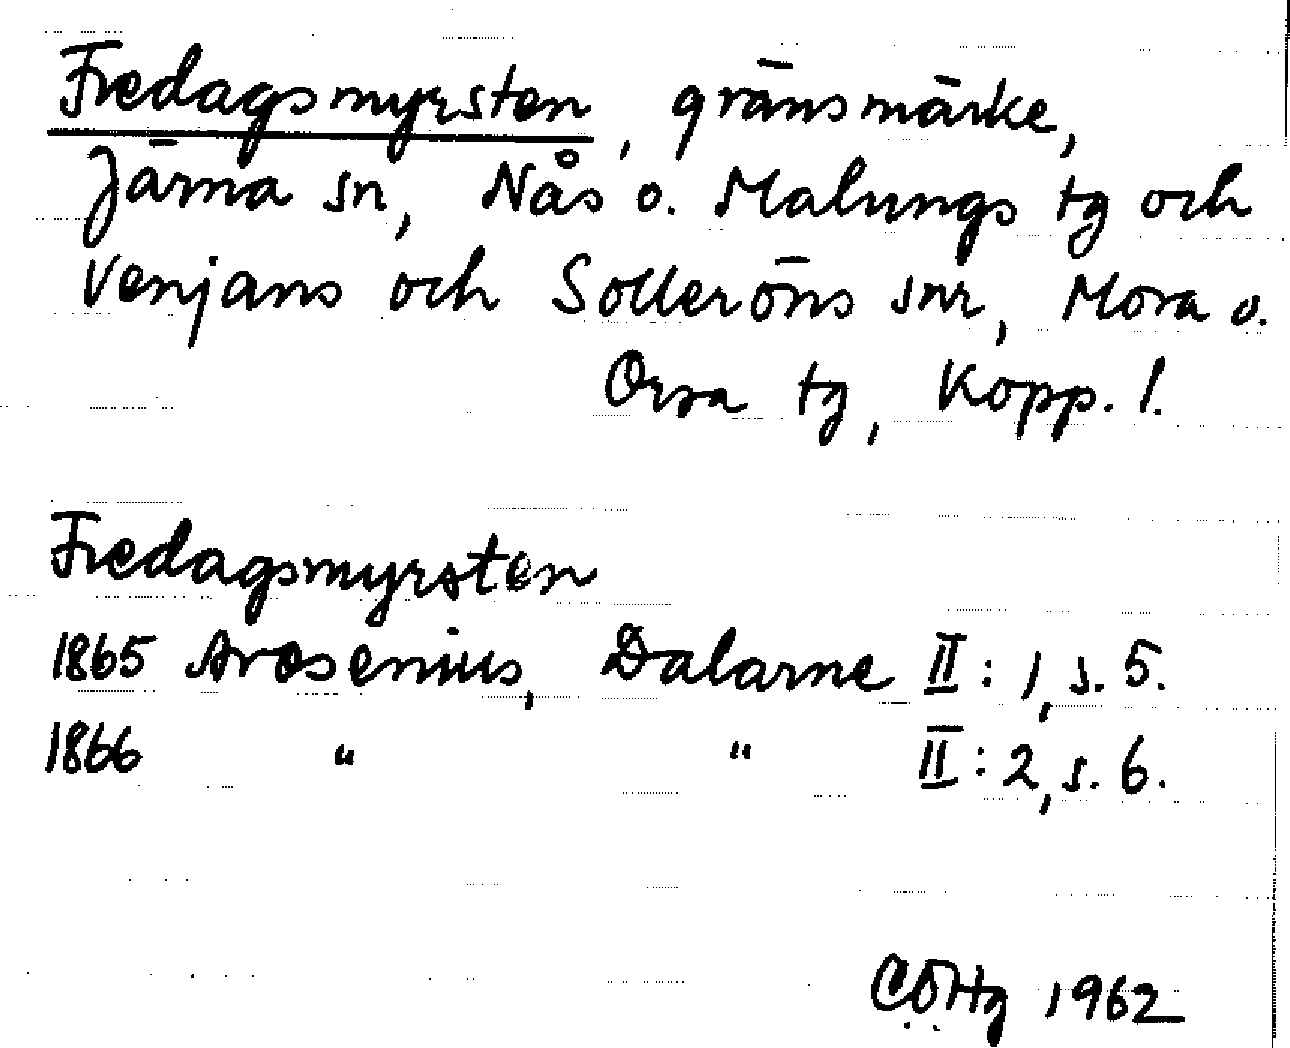 Fredagsmyrsten, gränsmärke,
Järna sn, Nås o. Malungs tg och
Venjans och Solleröns snr, Mora o.
Orsa tg, Kopp. l.
Fredagsmyrsten
1865 Arosenius, Dalarne II: 1, s. 5.
1866 " " II: 2, s. 6.
CÖHg 1962